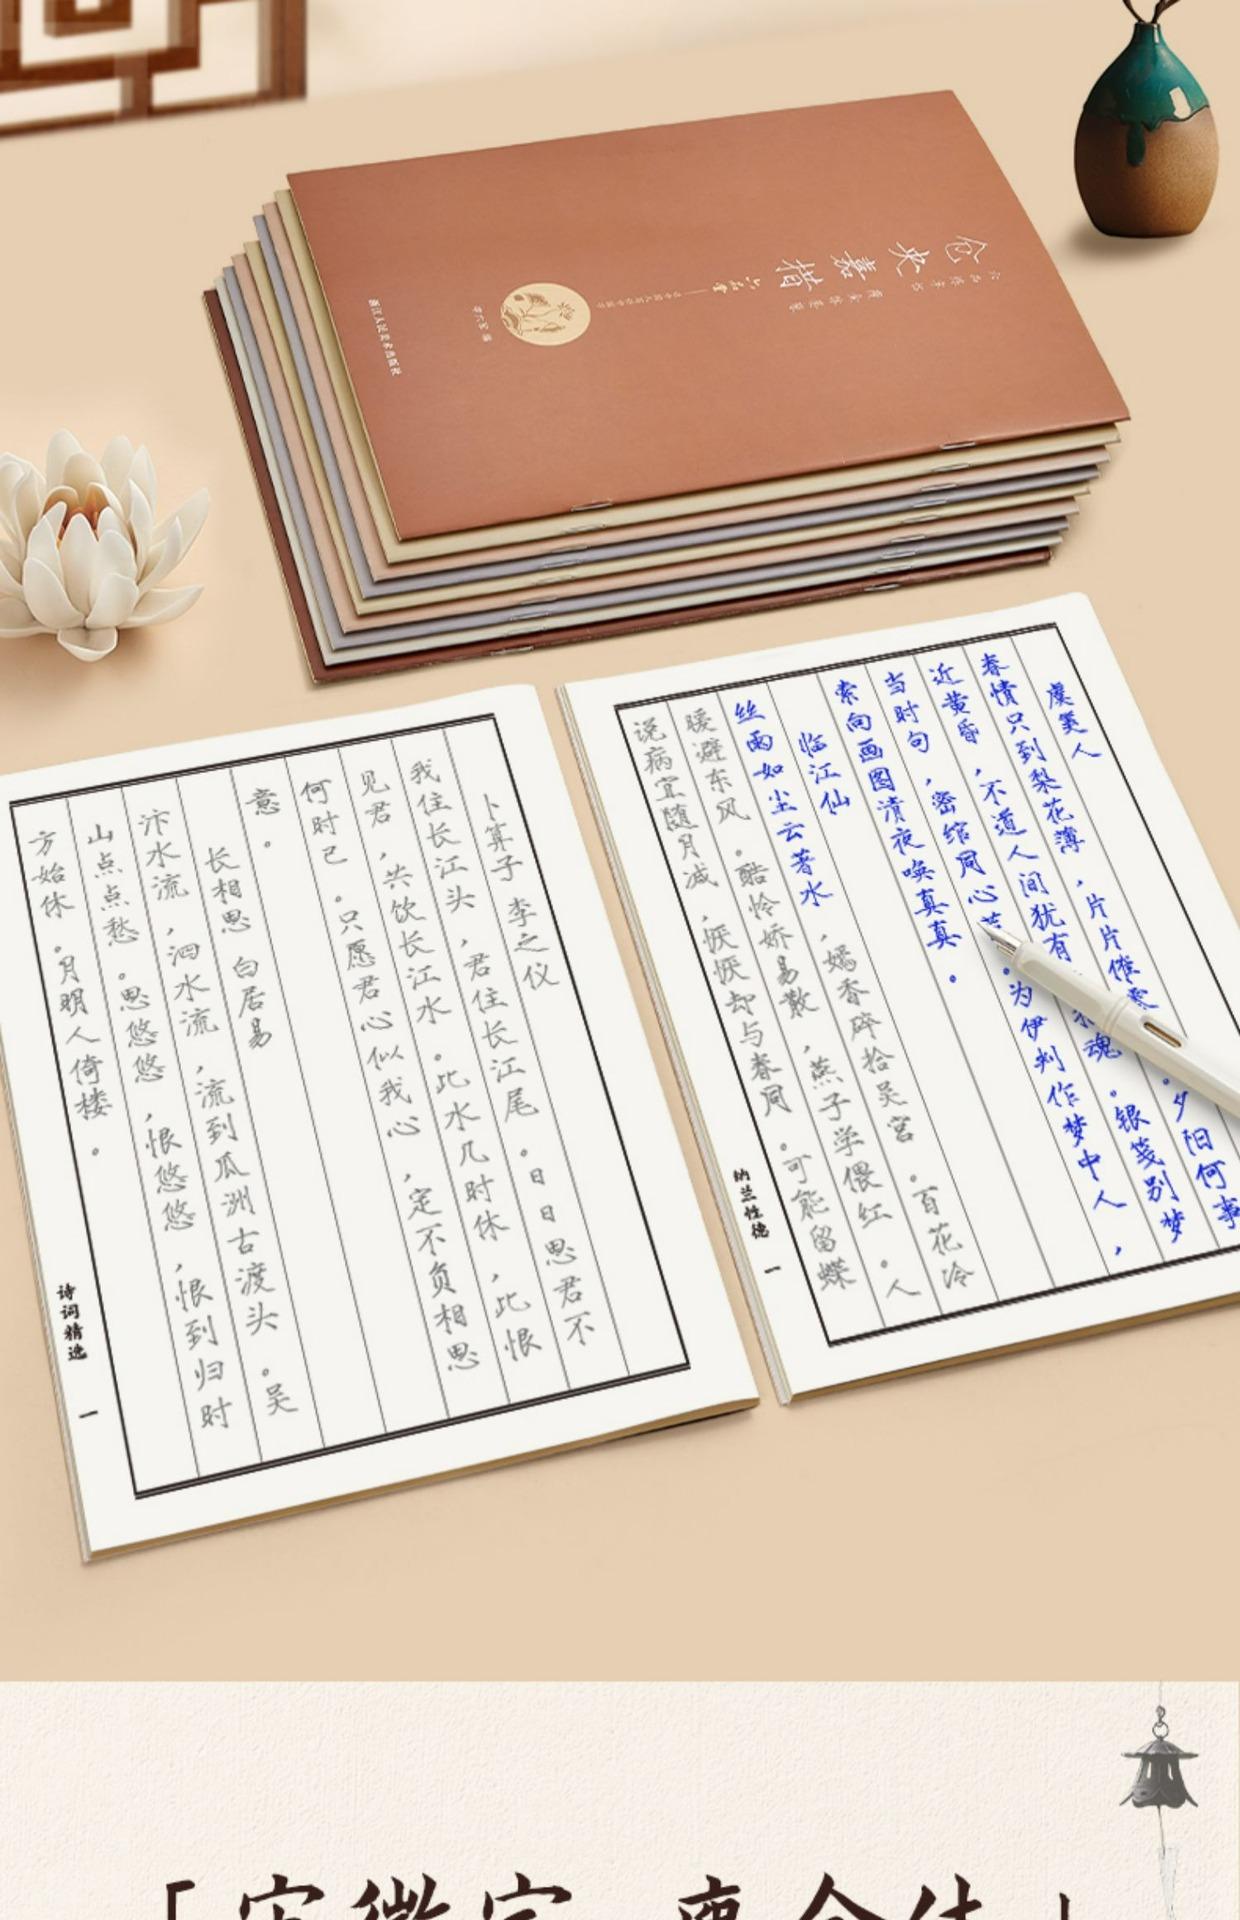 仓央嘉措
浙江人民美术出版社
卜算子 李之仪
我住长江头，君住长江尾。日日思君不
见君，共饮长江水。此水几时休，此恨
何时已。只愿君心似我心，定不负相思
意。
长相思 白居易
汴水流，泗水流，流到瓜洲古渡头。吴
山点点愁。思悠悠，恨悠悠，恨到归时
方始休。月明人倚楼。
诗词精选
一
虞美人
春情只到梨花薄，片片催零 。夕阳何事
近黄昏，不道人间犹有 魂。银笺别梦
当时句，密绾同心 。为伊判作梦中人，
索向画图清夜唤真真。
临江仙
丝雨如尘云著水，嫣香碎拾吴宫。百花冷
暖避东风。酷怜娇易散，燕子学偎红。人
说病宜随月减，恹恹却与春同。可能留蝶
纳兰性德
一